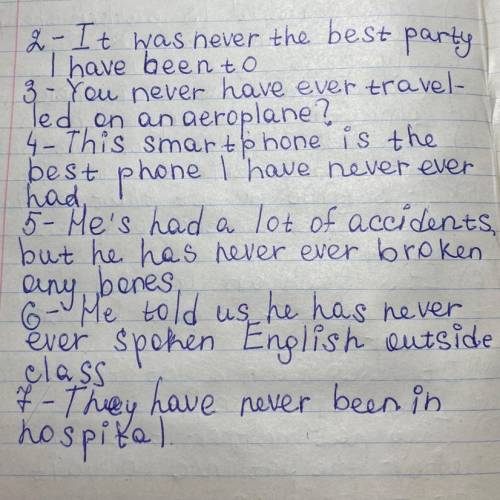 2-It was never the best party
I have been to
3-You never have ever travel-
led on an aeroplane?
4-This smartphone is the
best phone I have never ever
had.
5-He's had a lot of accidents,
but he has never ever broken
any bones.
6-He told us he has never
ever spoken English outside
class
7-They have never been in
hospital.